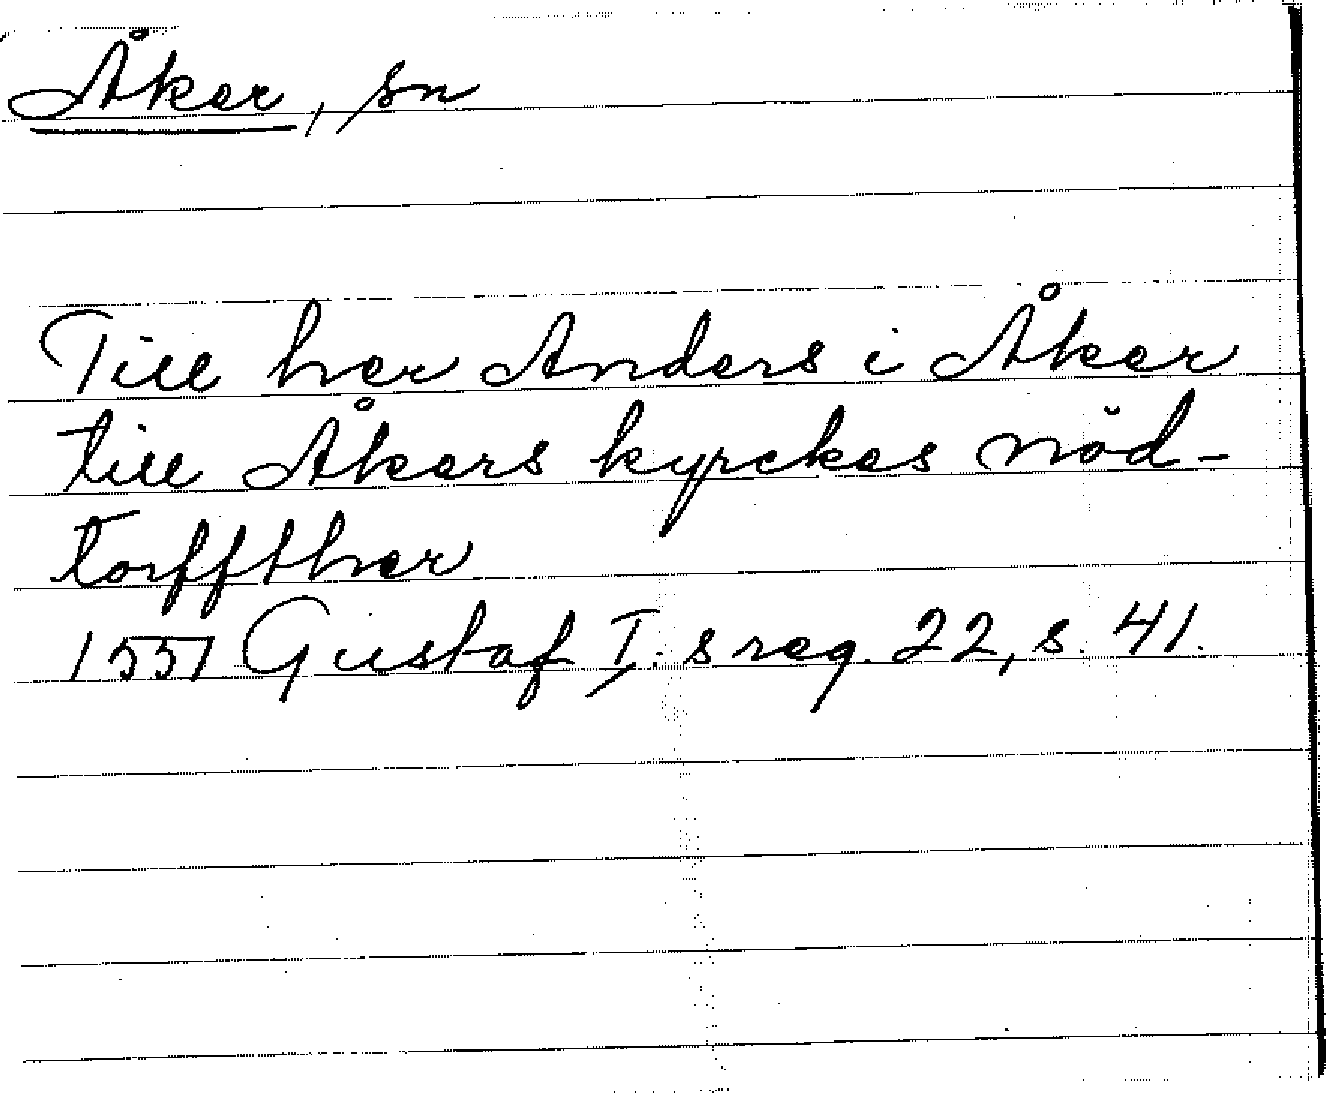 Åker, sn
Till her Anders i Åker
till Åkers kyrckes nöd-
torffther
1551 Gustaf I:s reg. 22, s. 41.